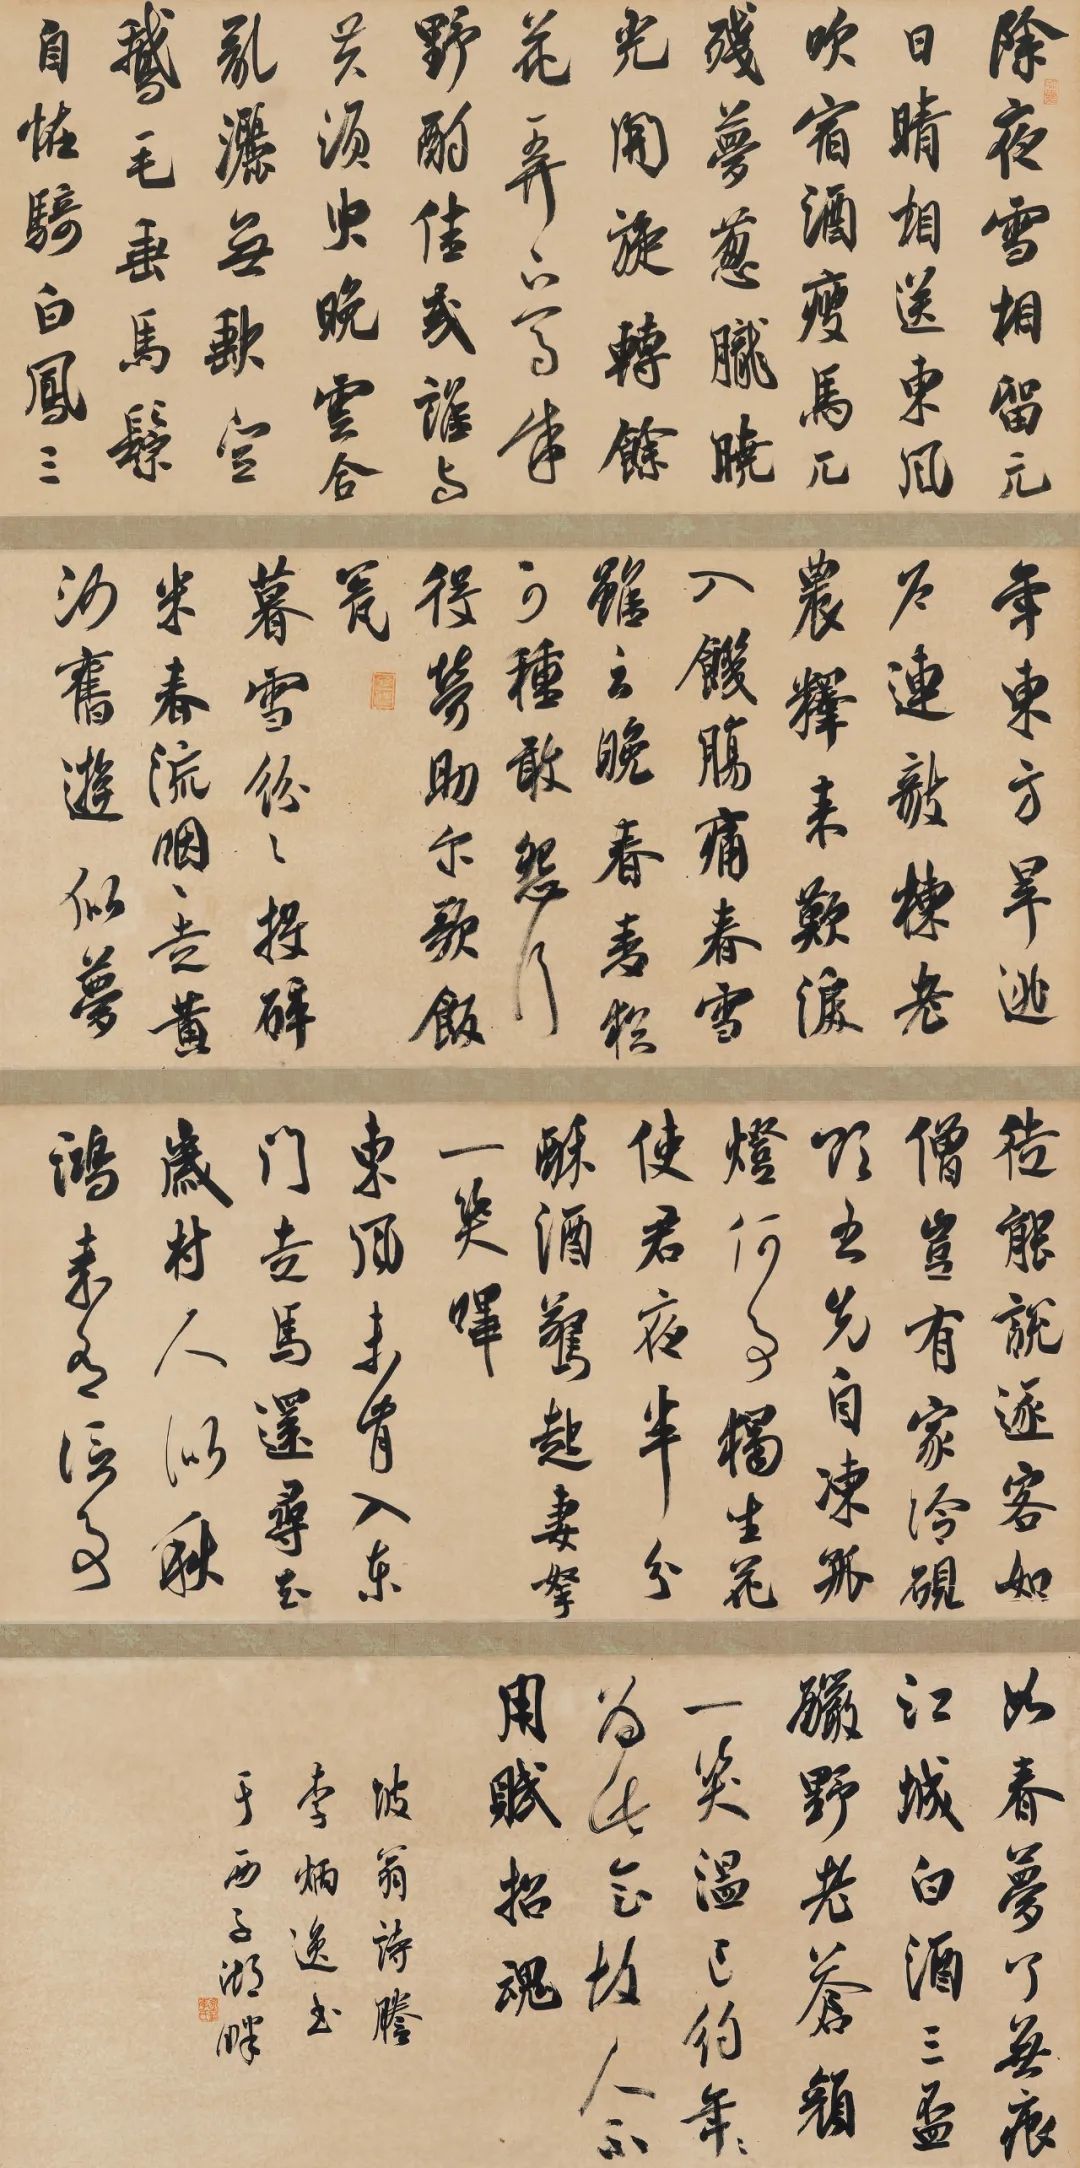 除夜雪相留元
日晴相送東風
吹宿酒瘦馬兀
殘夢葱曨曉
光開旋轉餘
花弄下馬成
野酌佳哉誰與
共須臾晚雲合
亂灑無缺空
鵝毛垂馬鬃
自怪騎白鳳三
年東方旱逃
戶連敧棟老
農釋耒歎淚
入饑腸痛春雪
雖云晚春麥猶
可種敢怨行
役勞助爾歌飯
瓮
暮雪紛〻投碎
米春流咽〻走黃
沙舊遊似夢
徒能說逐客如
僧豈有家冷硯
欲書先自凍孤
燈何事獨生花
使君夜半分
酥酒驚起妻孥
一笑嘩
東風未肯入東
門走馬還尋去
歲村人似秋
鴻來有信事
如春夢了無痕
江城白酒三盃
釅野老蒼顏
一笑溫已約年〻
為此會故人不
用賦招魂
坡翁詩謄
李炳逸書
于西子湖畔